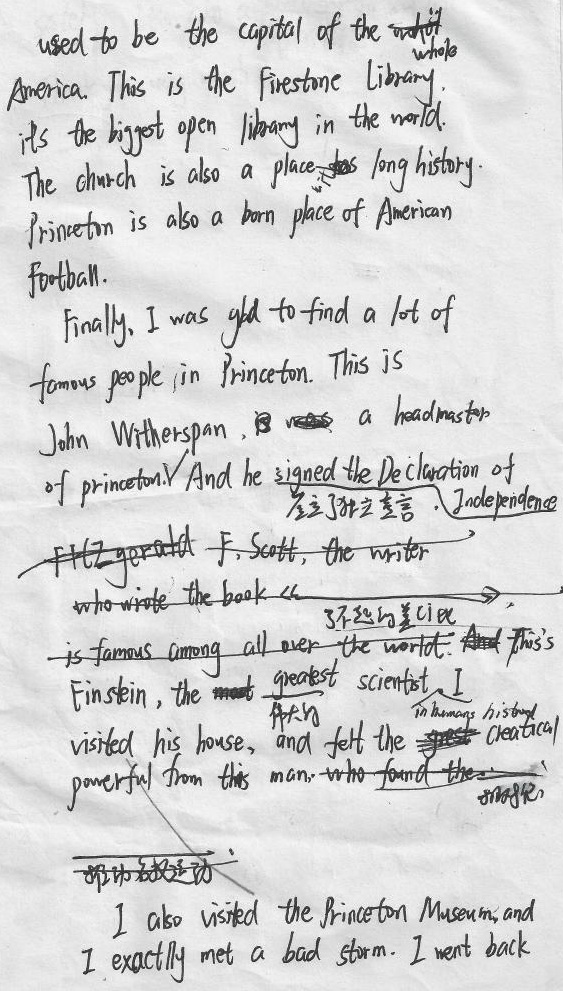 used to be the capital of the
whole
America. This is the Firestone Library.
it's the biggest open library in the world.
The church is also a place with long history.
Princeton is also a born place of American
Football.
Finally, I was glad to find a lot of
famous people in Princeton. This is
John Witherspan, a headmaster
of princeton. And he signed the Declaration of
Independence
Fitzgerald F. Scott, the writer
who wrote the book <<
is famous among all over the world. And This's
Einstein, the most greatest scientist I
伟大的
in humans history
visited his house, and felt the great Creatical
powerful from this man. who found the
I also visited the Princeton Museum, and
I exactlly met a bad storm. I went back